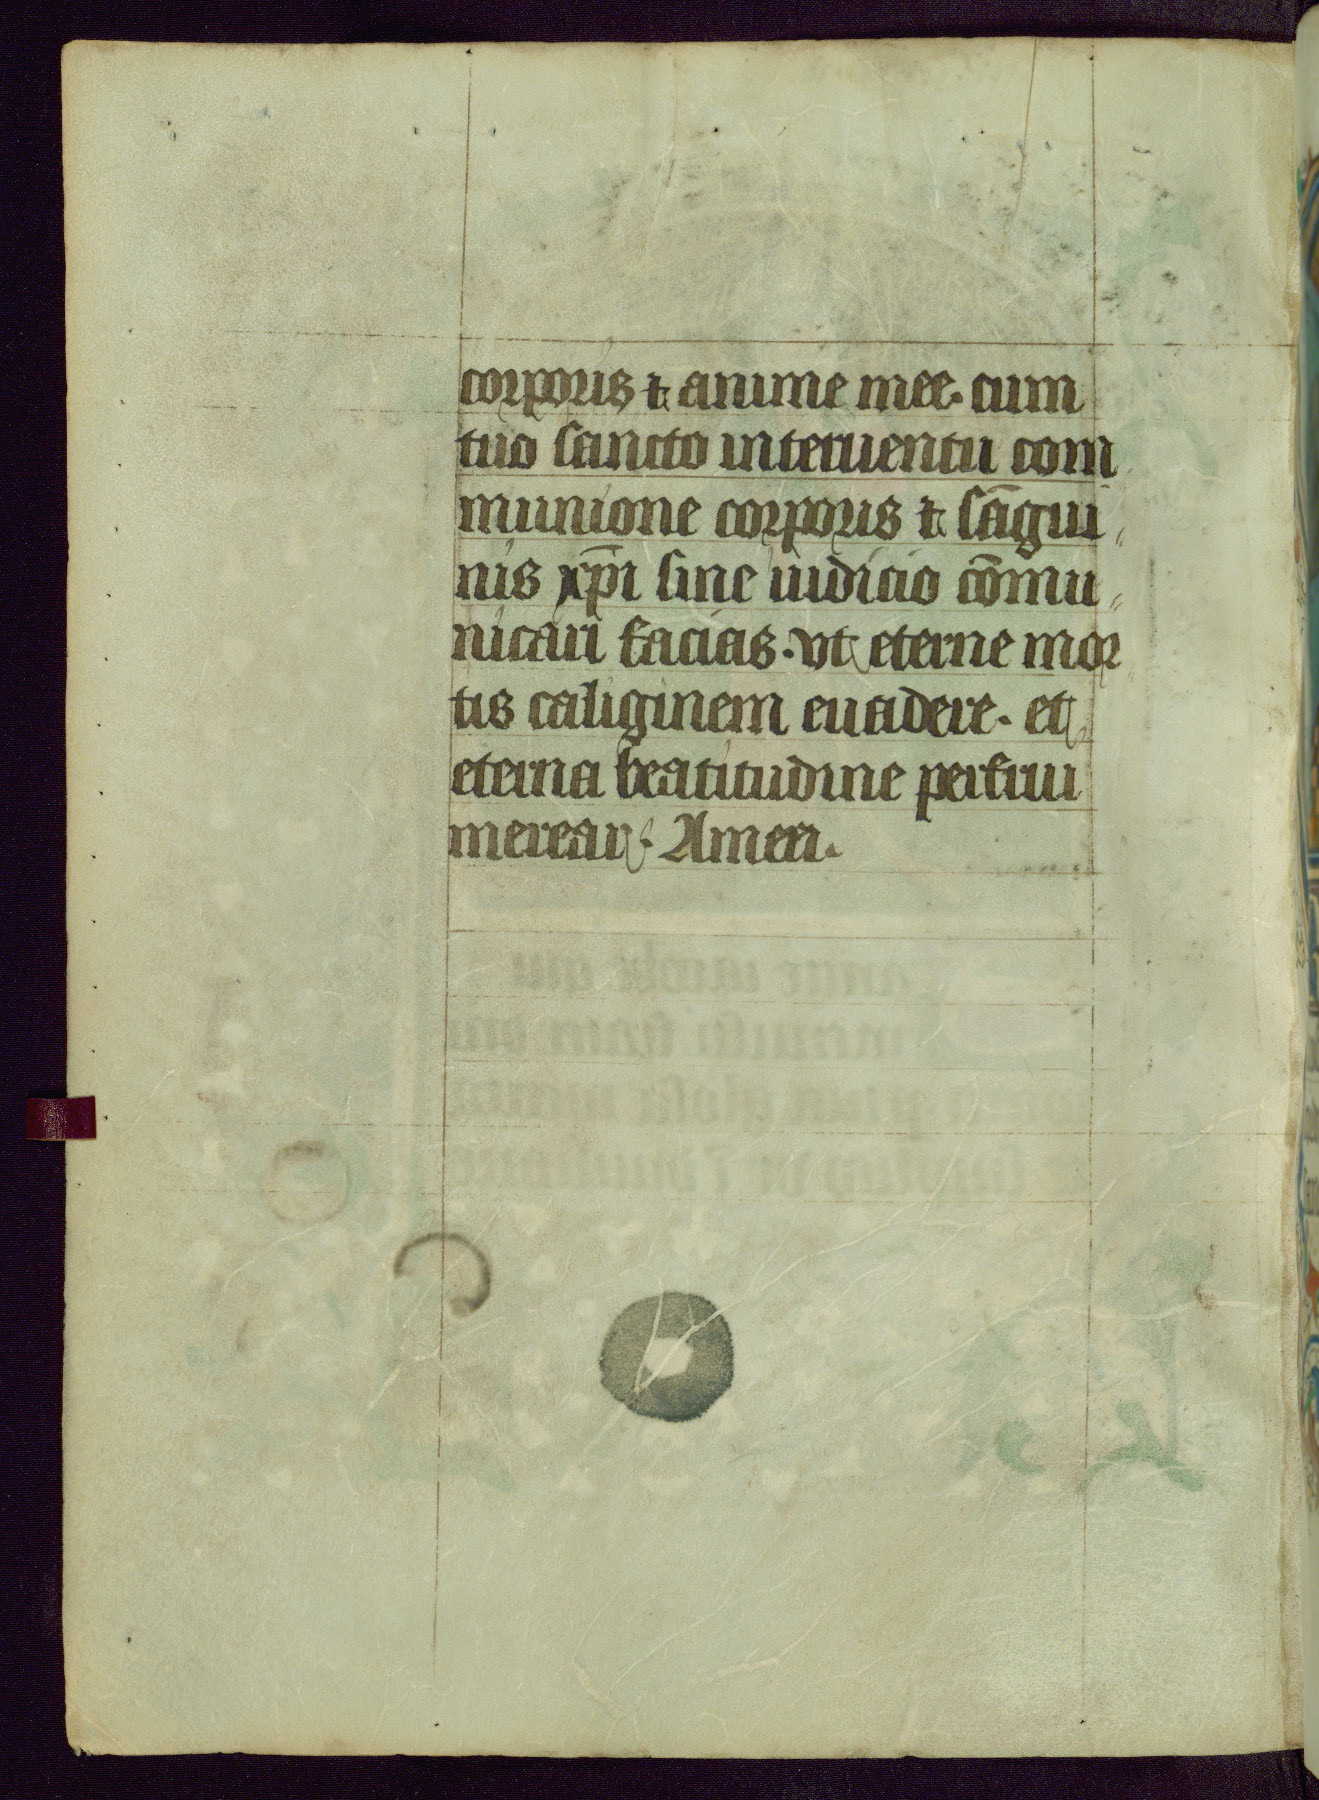 corporis ⁊ anime mee. cum
tuo sancto interuentu com
munione corporis ⁊ sāgui
nis xp̄i sine iudicio cōmu
nicari facias. vt eterne mor
tis caliginem euadere. et
eterna beatitudine perfrui
merear. Amen.